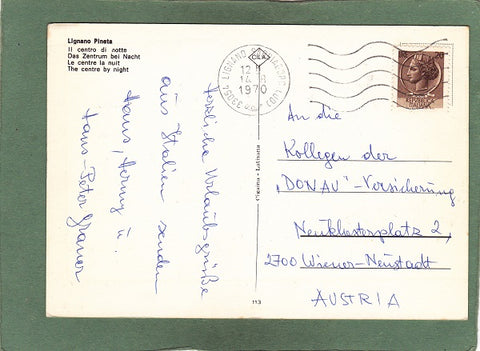 Lignano Pineta
Il centro di notte
Das Zentrum bei Nacht
Le centre la nuit
The centre by night
33054 LIGNANO SABBIADORO (UD)
12
14.8
1970
70
Herzliche Urlaubsgrüße
aus Italien senden
Hans, Herny u.
Hans-Peter Graner
An die
Kollegen der
„DONAU"-Versicherung
Neuklosterplatz 2
2700 Wiener-Neustadt
AUSTRIA
113